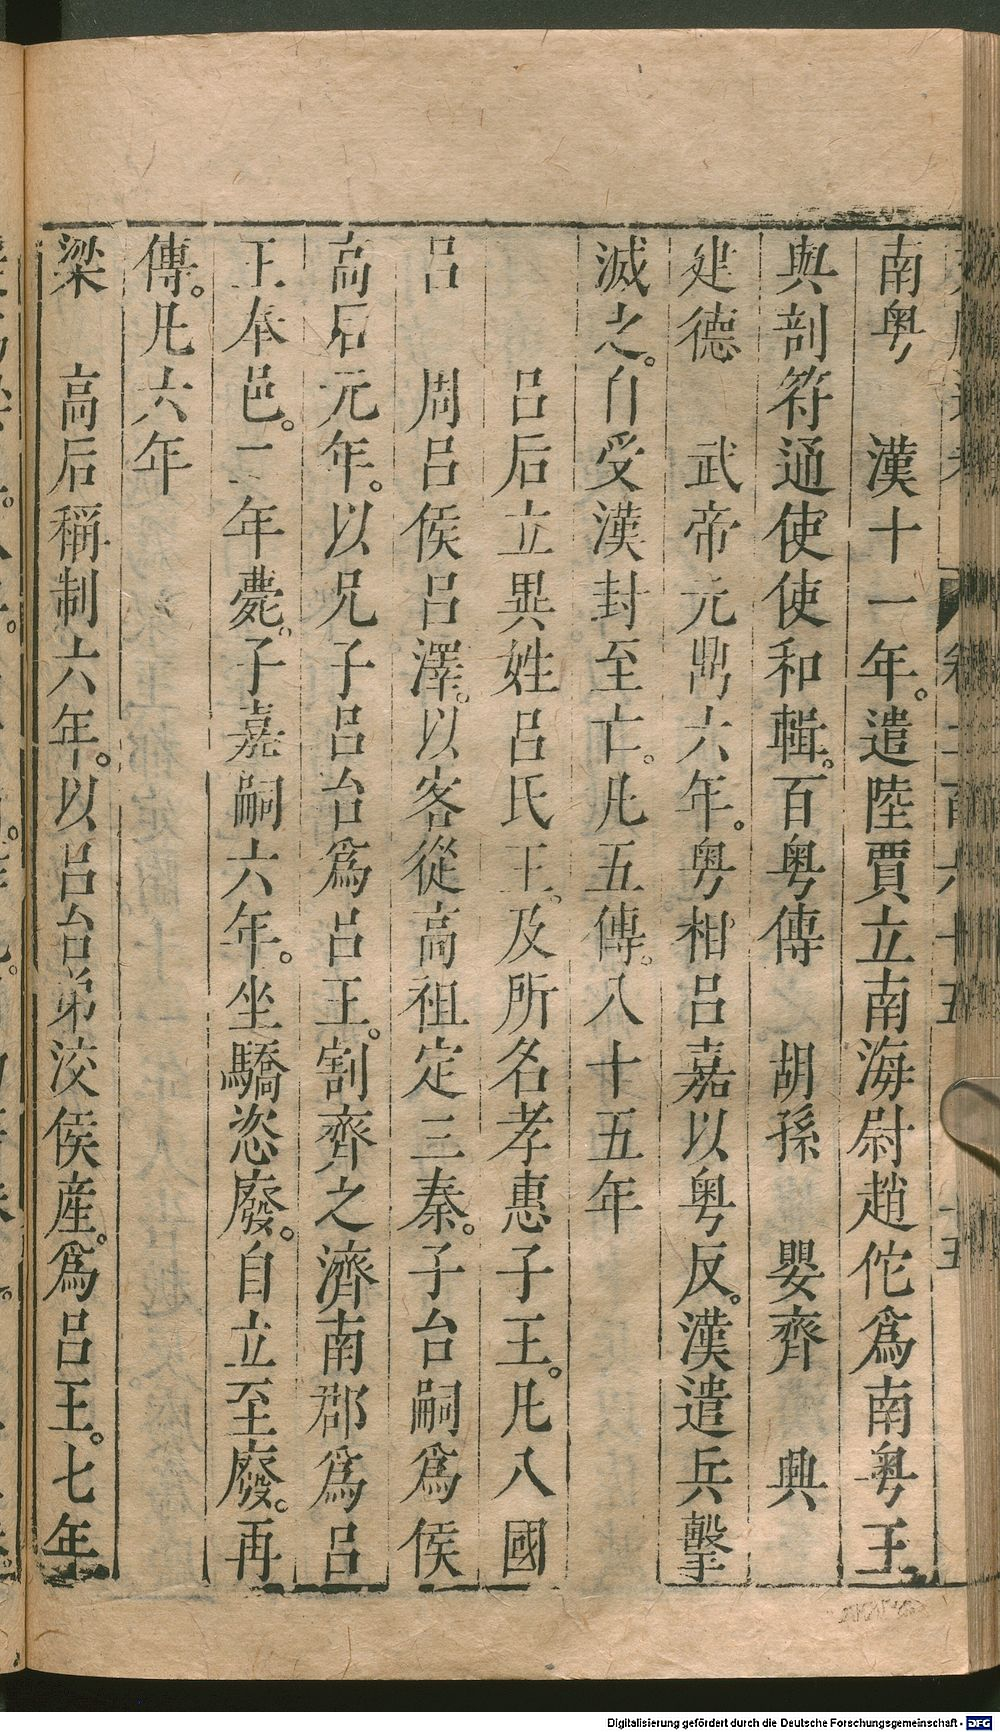 南粤　漢十一年。遣陸賈立南海尉趙佗爲南粤王
與剖符通使使和輯。百粤傳　胡孫　嬰齊　興
建德　武帝元鼎六年。粤相呂嘉以粤反。漢遣兵擊
滅之。自受漢封至亡。凡五傳。八十五年
呂后立異姓呂氏王。及所名孝惠子王。凡八國
呂　周呂侯呂澤。以客從高祖定三秦。子台嗣爲侯
高后元年。以兄子呂台爲呂王。割齊之濟南郡爲呂
王奉邑。二年薨。子嘉嗣六年。坐驕恣廢。自立至廢。再
傳。凡六年
梁　高后稱制六年。以呂台弟洨侯産。爲呂王。七年
Digitalisierung gefördert durch die Deutsche Forschungsgemeinschaft - DFG